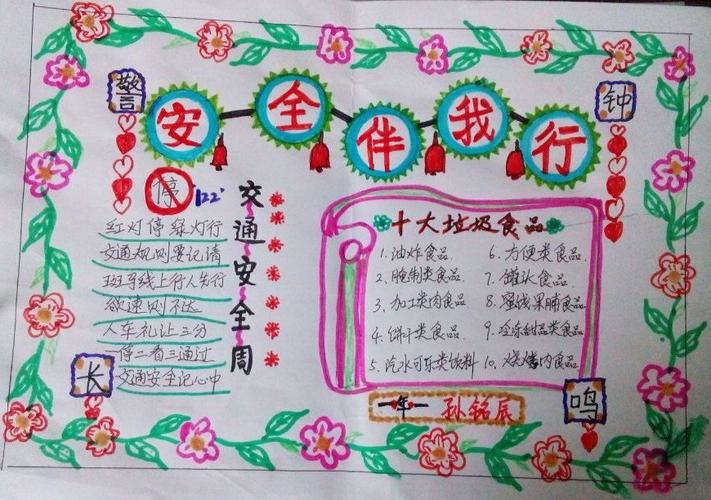 警
钟
安全伴我行
停 122
红灯停绿灯行
交通规则要记请
斑马线上行人先行
欲速则不达
人车礼让三分
停二看三通过
交通安全记心中
交通安全周
十大垃圾食品
1.油炸食品
2.腌制类食品
3.加工类肉食品
4.饼干类食品
5.汽水可乐类饮料
6.方便类食品
7.罐头食品
8.蜜饯果脯食品
9.冷冻甜品类食品
10.烧烤肉食品
长
鸣
一年一 孙铭